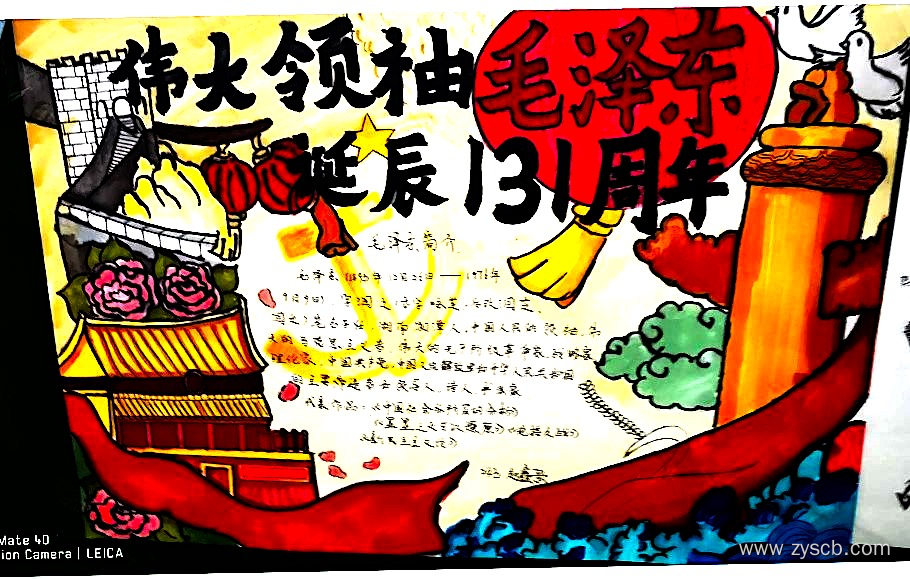 伟大领袖毛泽东
诞辰131周年
毛泽东简介
毛泽东(1893年12月26日——1976年
9月9日),字润之(
湖南湘潭人,中国人民的领袖,伟
大的马克思主义者,伟大的无产阶级革命家,战略家
理论家,中国共产党,中国人民解放军和中华人民共和国
的主要缔造者和领导人,诗人,书法家
代表作品:《中国社会各阶层的分析》
Mate 40
ion Camera | LEICA
www.zyscb.com